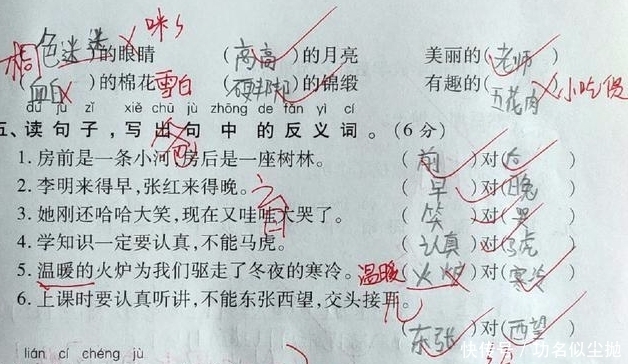 色迷迷的眼睛 咪咪 (高高)的月亮 美丽的(老师)
(血白)的棉花 雪白 (硬邦邦)的锦缎 有趣的(五花肉) 小吃货
dú jù zǐ xiě chū jù zhōng de fǎn yì cí
五、读句子,写出句中的反义词。(6分)
1. 房前是一条小河,房后是一座树林。 (前)对(后)
2. 李明来得早,张红来得晚。 (早)对(晚)
3. 她刚还哈哈大笑,现在又哇哇大哭了。 (笑)对(哭)
4. 学知识一定要认真,不能马虎。 (认真)对(马虎)
5. 温暖的火炉为我们驱走了冬夜的寒冷。 温暖 (火炉)对(寒冷)
6. 上课时要认真听讲,不能东张西望,交头接耳。
(东张)对(西望)
lián cí chéng jù
快传号/功名似尘抛